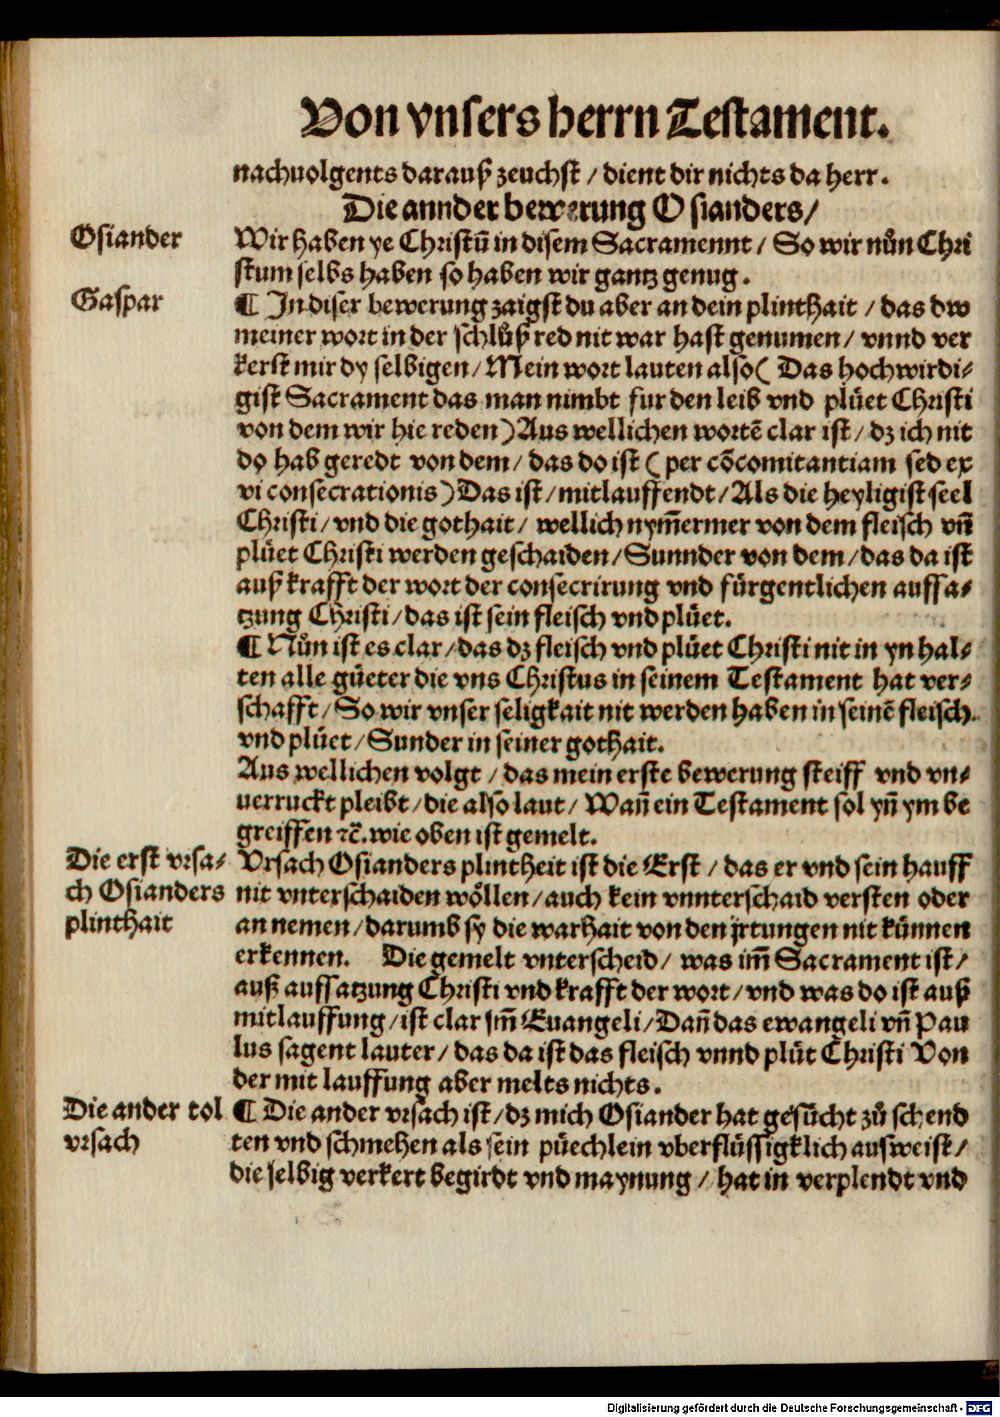 Von vnſers herrn Teſtament.
nachuolgents darauß zeuchſt / dient dir nichts da herr.
Die annder bewerung Oſianders /
Oſiander
Wir haben ye Chriſtū in diſem Sacramennt / So wir nůn Chri
ſtum ſelbs haben ſo haben wir gantz genug.
Gaſpar
¶ In diſer bewerung zaigſt du aber an dein plinthait / das dw
meiner wort in der ſchlůß red nit war haſt genumen / vnnd ver
kerſt mir dy ſelbigen / Mein wort lauten alſo ( Das hochwirdi⸗
giſt Sacrament das man nimbt fur den leib vnd plůet Chriſti
von dem wir hie reden ) Aus wellichen wortē clar iſt / dz ich nit
do hab geredt von dem / das do iſt ( per cōcomitantiam ſed ex
vi conſecrationis ) Das iſt / mitlauffendt / Als die heyligiſt ſeel
Chriſti / vnd die gothait / wellich nym̄ermer von dem fleiſch vn̄
plůet Chriſti werden geſchaiden / Sunnder von dem / das da iſt
auß krafft der wort der conſecrirung vnd fürgentlichen auffſa⸗
tzung Chriſti / das iſt ſein fleiſch vnd plůet.
¶ Nůn iſt es clar / das dz fleiſch vnd plůet Chriſti nit in yn hal⸗
ten alle güeter die vns Chriſtus in ſeinem Teſtament hat ver⸗
ſchafft / So wir vnſer ſeligkait nit werden haben in ſeinē fleiſch
vnd plůet / Sunder in ſeiner gothait.
Aus wellichen volgt / das mein erſte bewerung ſteiff vnd vn⸗
uerruckt pleibt / die alſo laut / Wan̄ ein Teſtament ſol yn̄ ym be
greiffen ꝛc̄. wie oben iſt gemelt.
Die erſt vrſa⸗
ch Oſianders
plinthait
Vrſach Oſianders plintheit iſt die Erſt / das er vnd ſein hauff
nit vnterſchaiden wöllen / auch kein vnnterſchaid verſten oder
an nemen / darumb ſy die warhait von den jrtungen nit künnen
erkennen. Die gemelt vnterſcheid / was im̄ Sacrament iſt /
auß auffſatzung Chriſti vnd krafft der wort / vnd was do iſt auß
mitlauffung / iſt clar jm̄ Euangeli / Dan̄ das ewangeli vn̄ Pau
lus ſagent lauter / das da iſt das fleiſch vnnd plůt Chriſti Von
der mit lauffung aber melts nichts.
Die ander tol
vrſach
¶ Die ander vrſach iſt / dz mich Oſiander hat geſůcht zů ſchend
ten vnd ſchmehen als ſein püechlein vberflüſſigklich auſweiſt /
die ſelbig verkert begirdt vnd maynung / hat in verplendt vnd
Digitalisierung gefördert durch die Deutsche Forschungsgemeinschaft - DFG